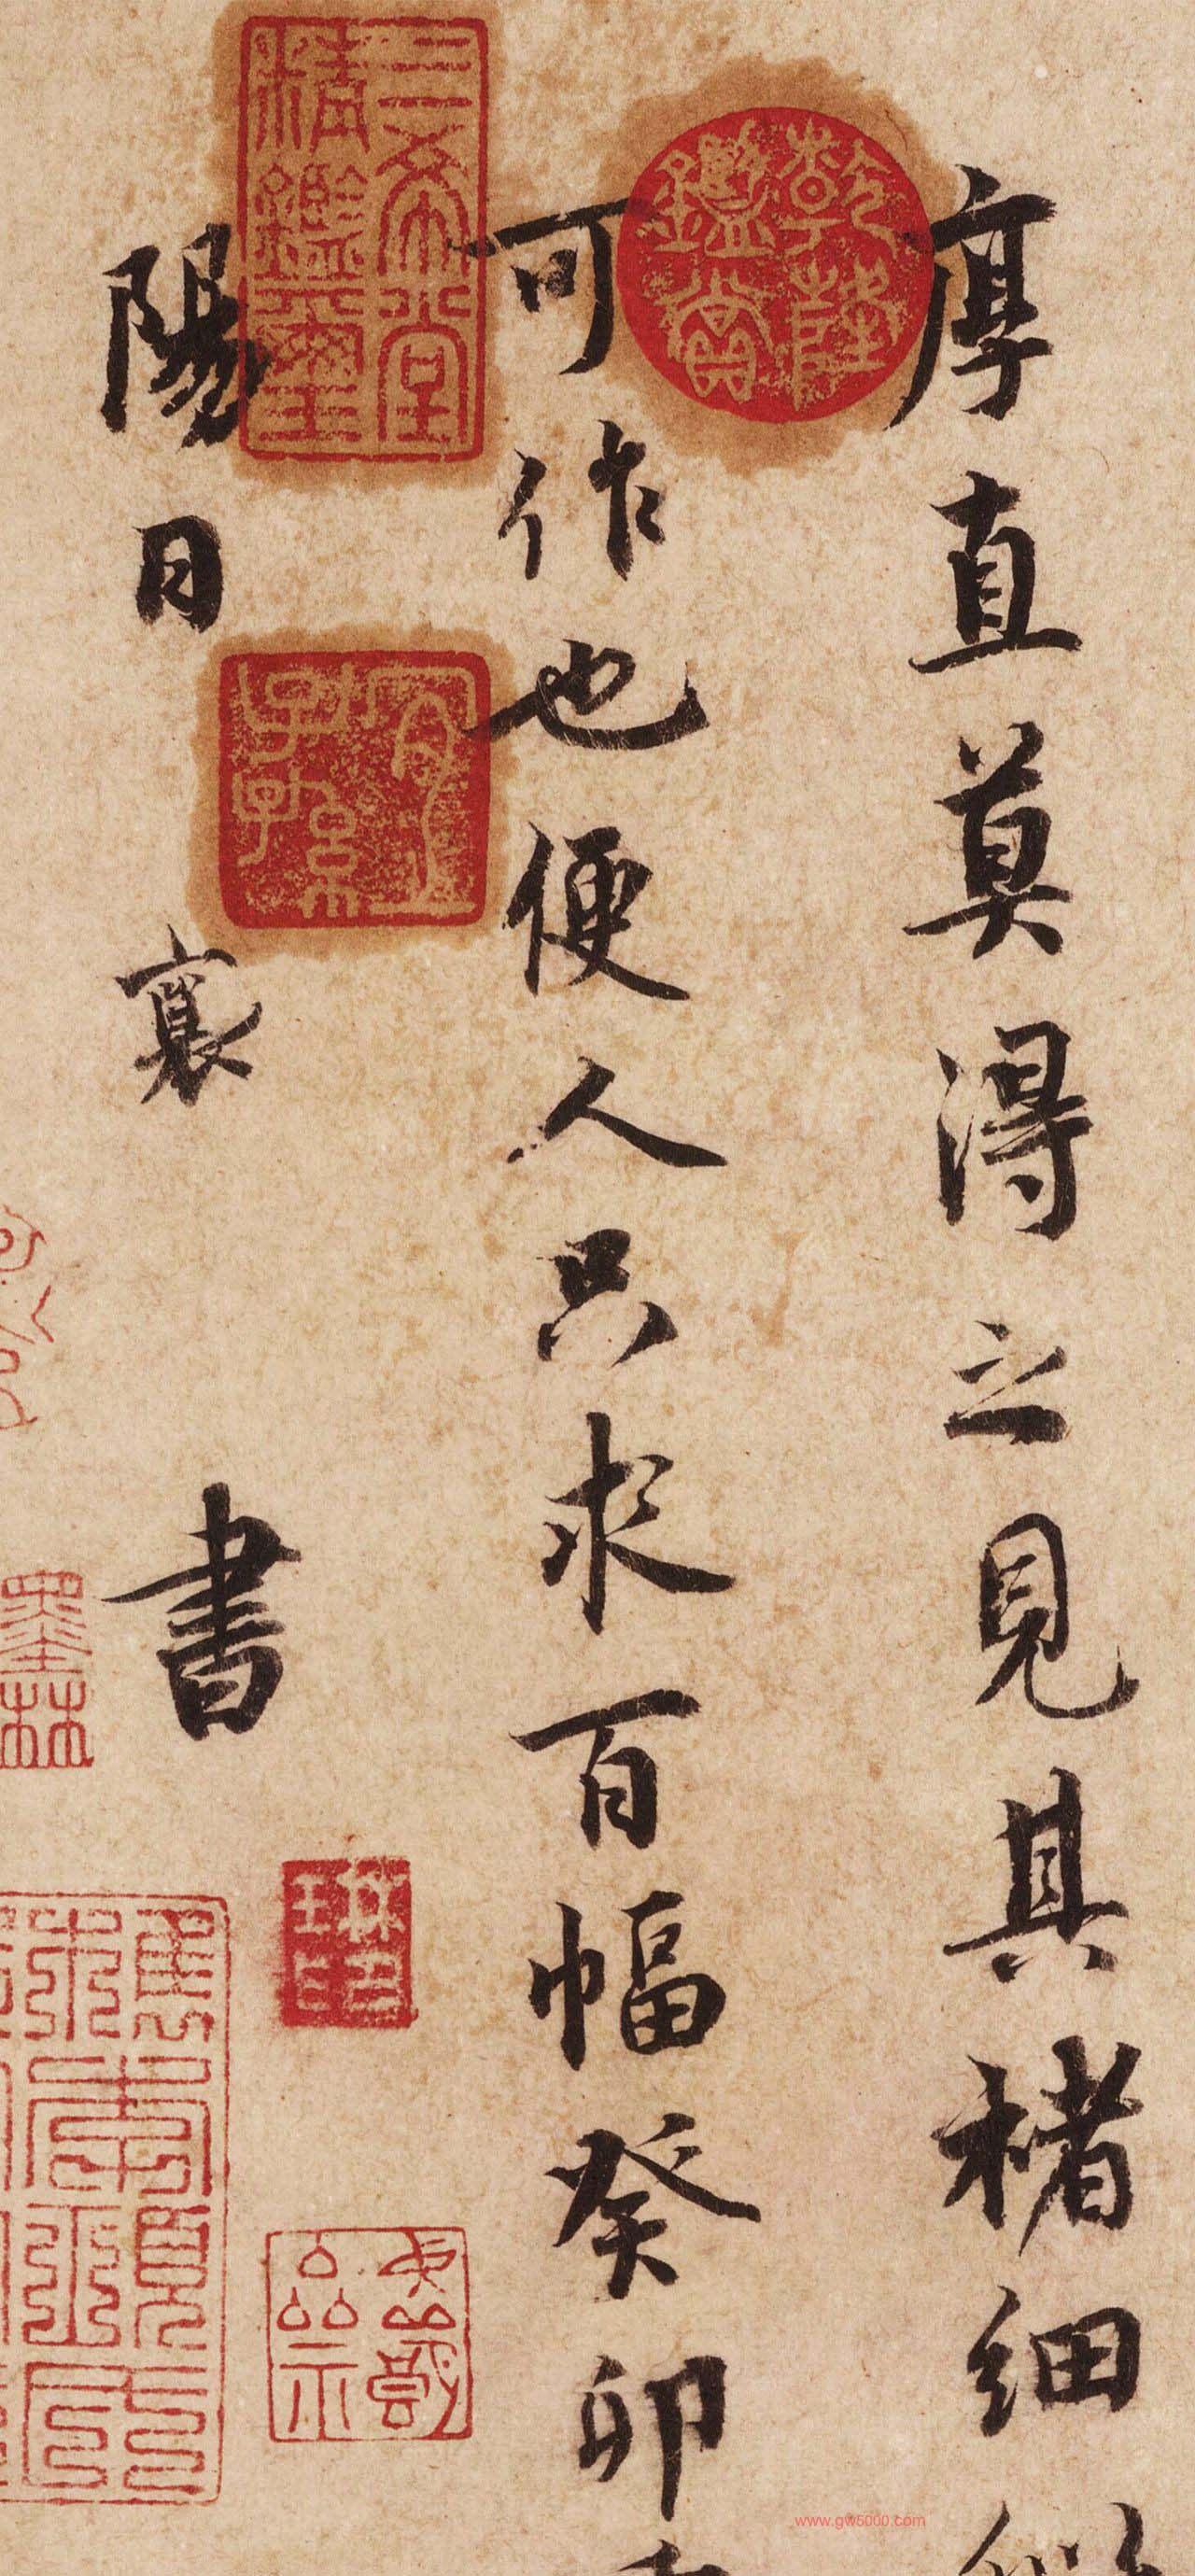 厚直莫得之見其楮細
可作也便人只求百幅癸卯
陽日 襄 書
乾隆鑑賞
三希堂精鑑璽
宜子孫
墨林
www.gw5000.com